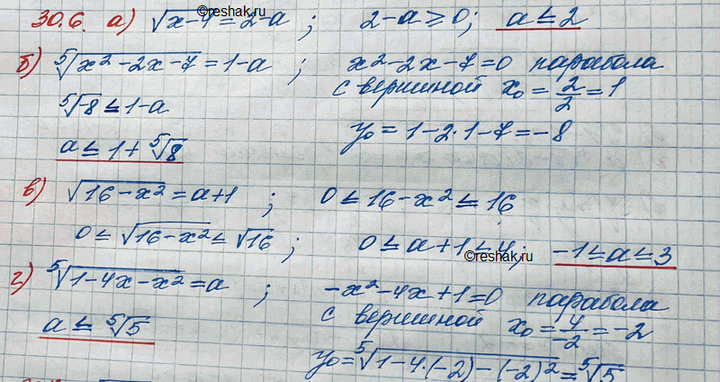 ©reshak.ru
30.6. а) √(x-7) = 2-a ; 2-a ≥ 0; a ≤ 2
б) ⁵√(x²-2x-7) = 1-a ; x²-2x-7=0 парабола
с вершиной x₀ = 2/2 = 1
⁵√-8 ≤ 1-a
y₀ = 1-2·1-7 = -8
a ≤ 1+⁵√8
в) √(16-x²) = a+1 ; 0 ≤ 16-x² ≤ 16
0 ≤ √(16-x²) ≤ √16 ; 0 ≤ a+1 ≤ 4; -1 ≤ a ≤ 3
©reshak.ru
г) ⁵√(1-4x-x²) = a ; -x²-4x+1=0 парабола
с вершиной x₀ = 4/-2 = -2
a ≤ ⁵√5
y₀ = ⁵√(1-4·(-2)-(-2)²) = ⁵√5